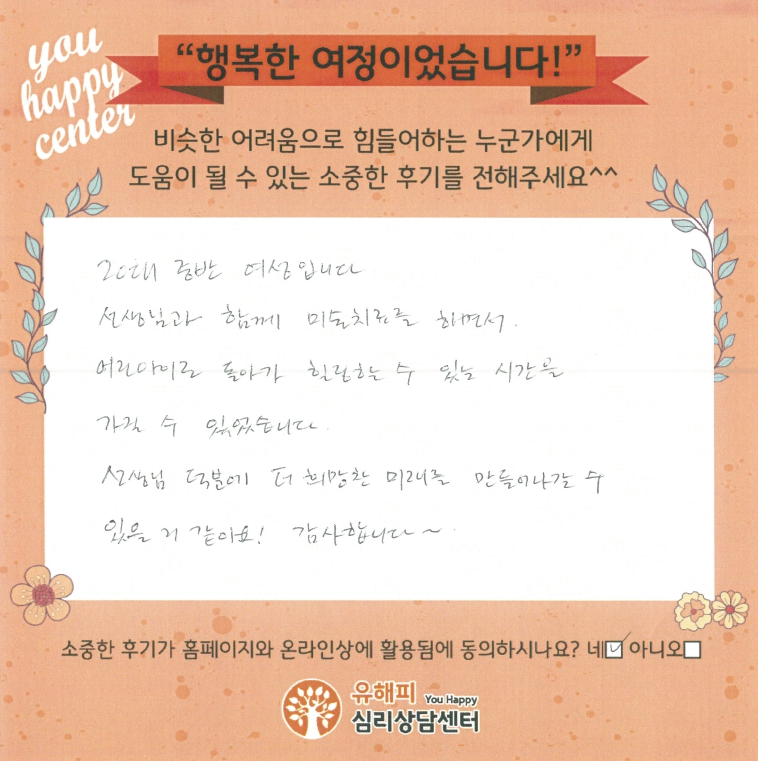 you
happy
center
“행복한 여정이었습니다!”
비슷한 어려움으로 힘들어하는 누군가에게
도움이 될 수 있는 소중한 후기를 전해주세요^^
20대 중반 여성입니다
선생님과 함께 미술치료를 하면서.
어린아이로 돌아가 힐링하는 수 있는 시간을
가질 수 있었습니다.
선생님 덕분에 더 희망찬 미래를 만들어나갈 수
있을 거 같아요! 감사합니다~.
소중한 후기가 홈페이지와 온라인상에 활용됨에 동의하시나요? 네☑ 아니오☐
유해피 You Happy
심리상담센터